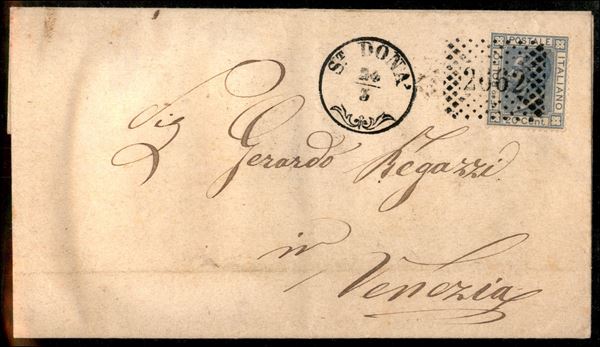 ST DONA'
24
3
2962
POSTALE
ITALIANO
20 Cent.
Sig
Gerardo Regazzi
in
Venezia